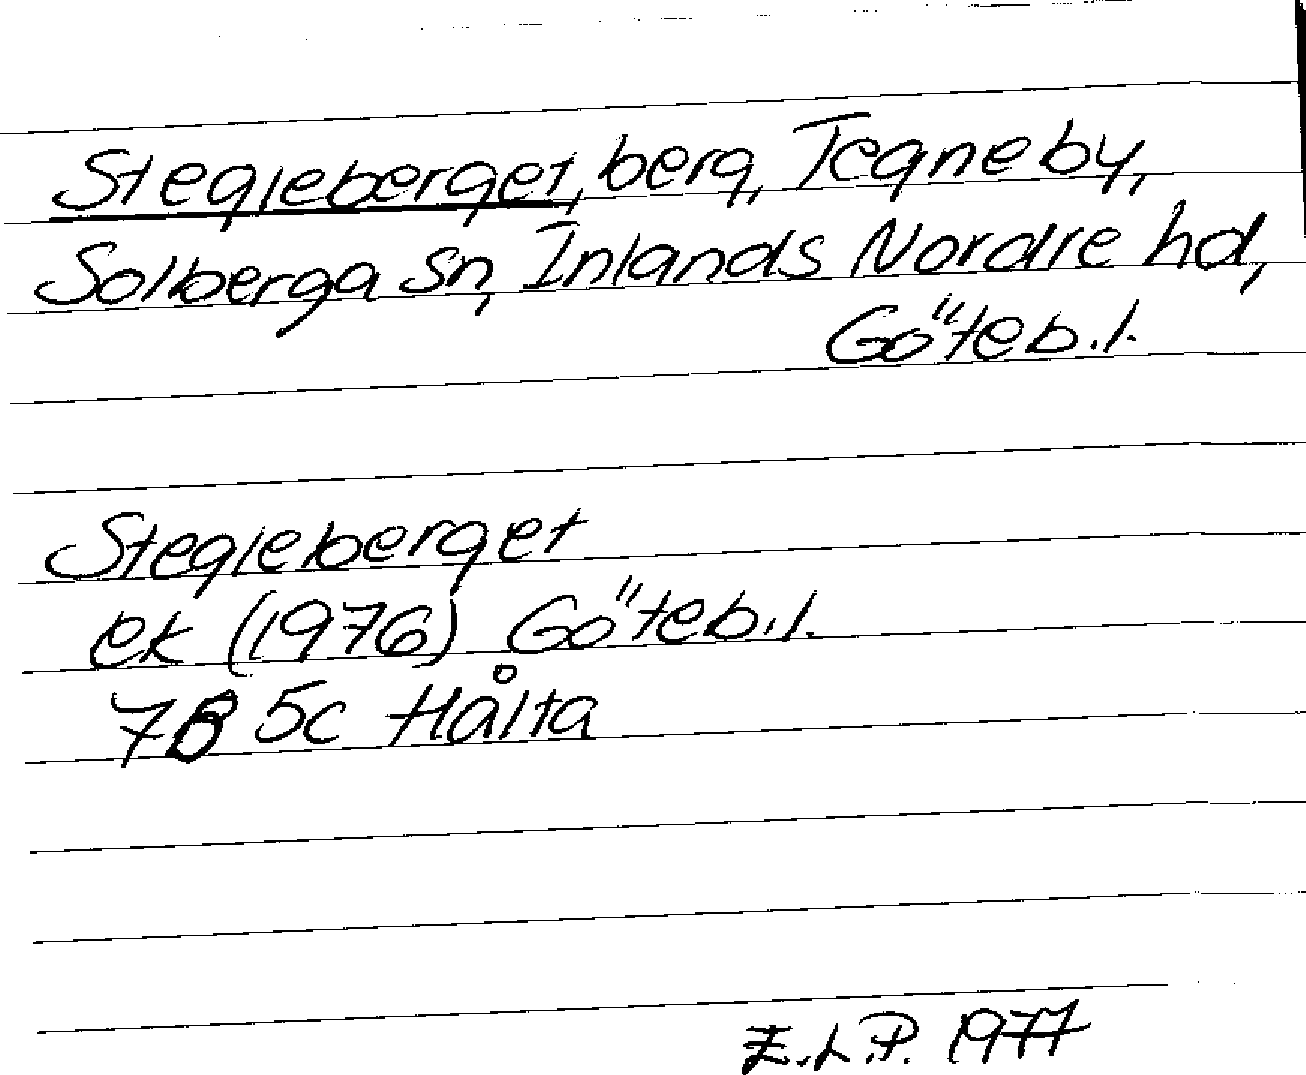 Stegleberget, berg, Tegneby,
Solberga sn, Inlands Nordre hd,
Göteb.l.
Stegleberget
ek (1976) Göteb.l.
7B 5c Hålta
E.L.P. 1977